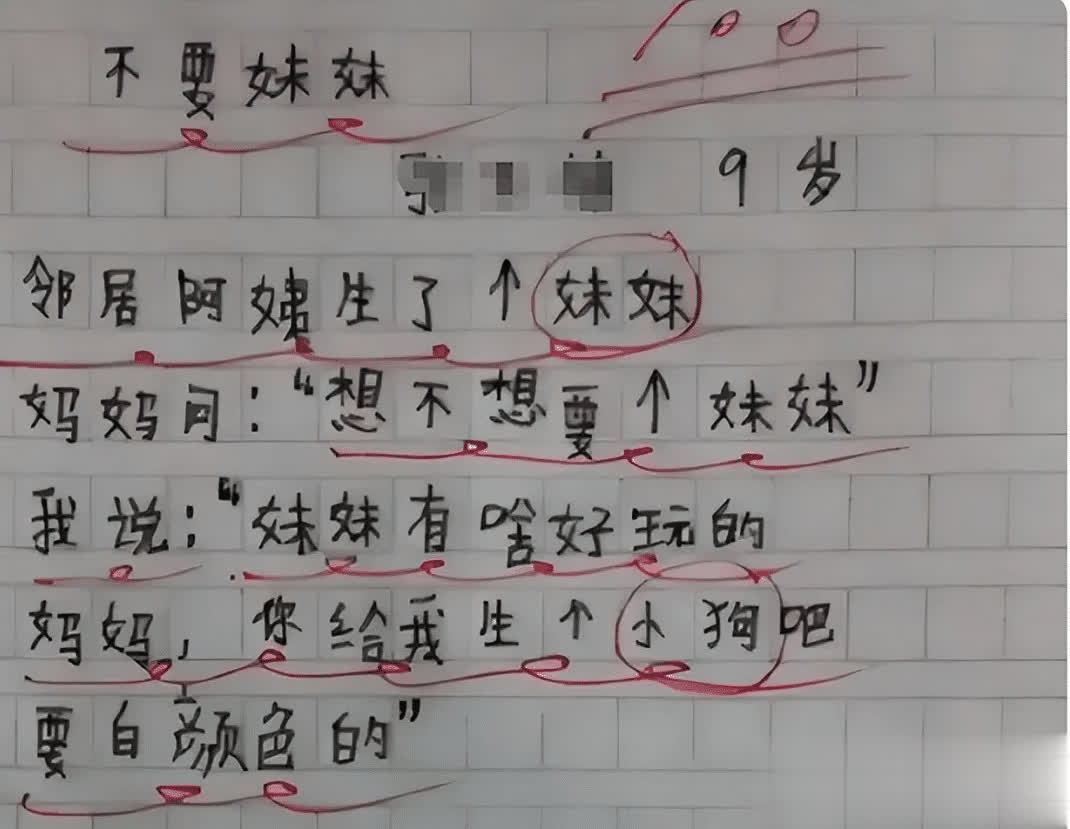 100
不要妹妹
9岁
邻居阿姨生了个妹妹
妈妈问:“想不想要个妹妹”
我说:“妹妹有啥好玩的
妈妈,你给我生个小狗吧
要白颜色的”